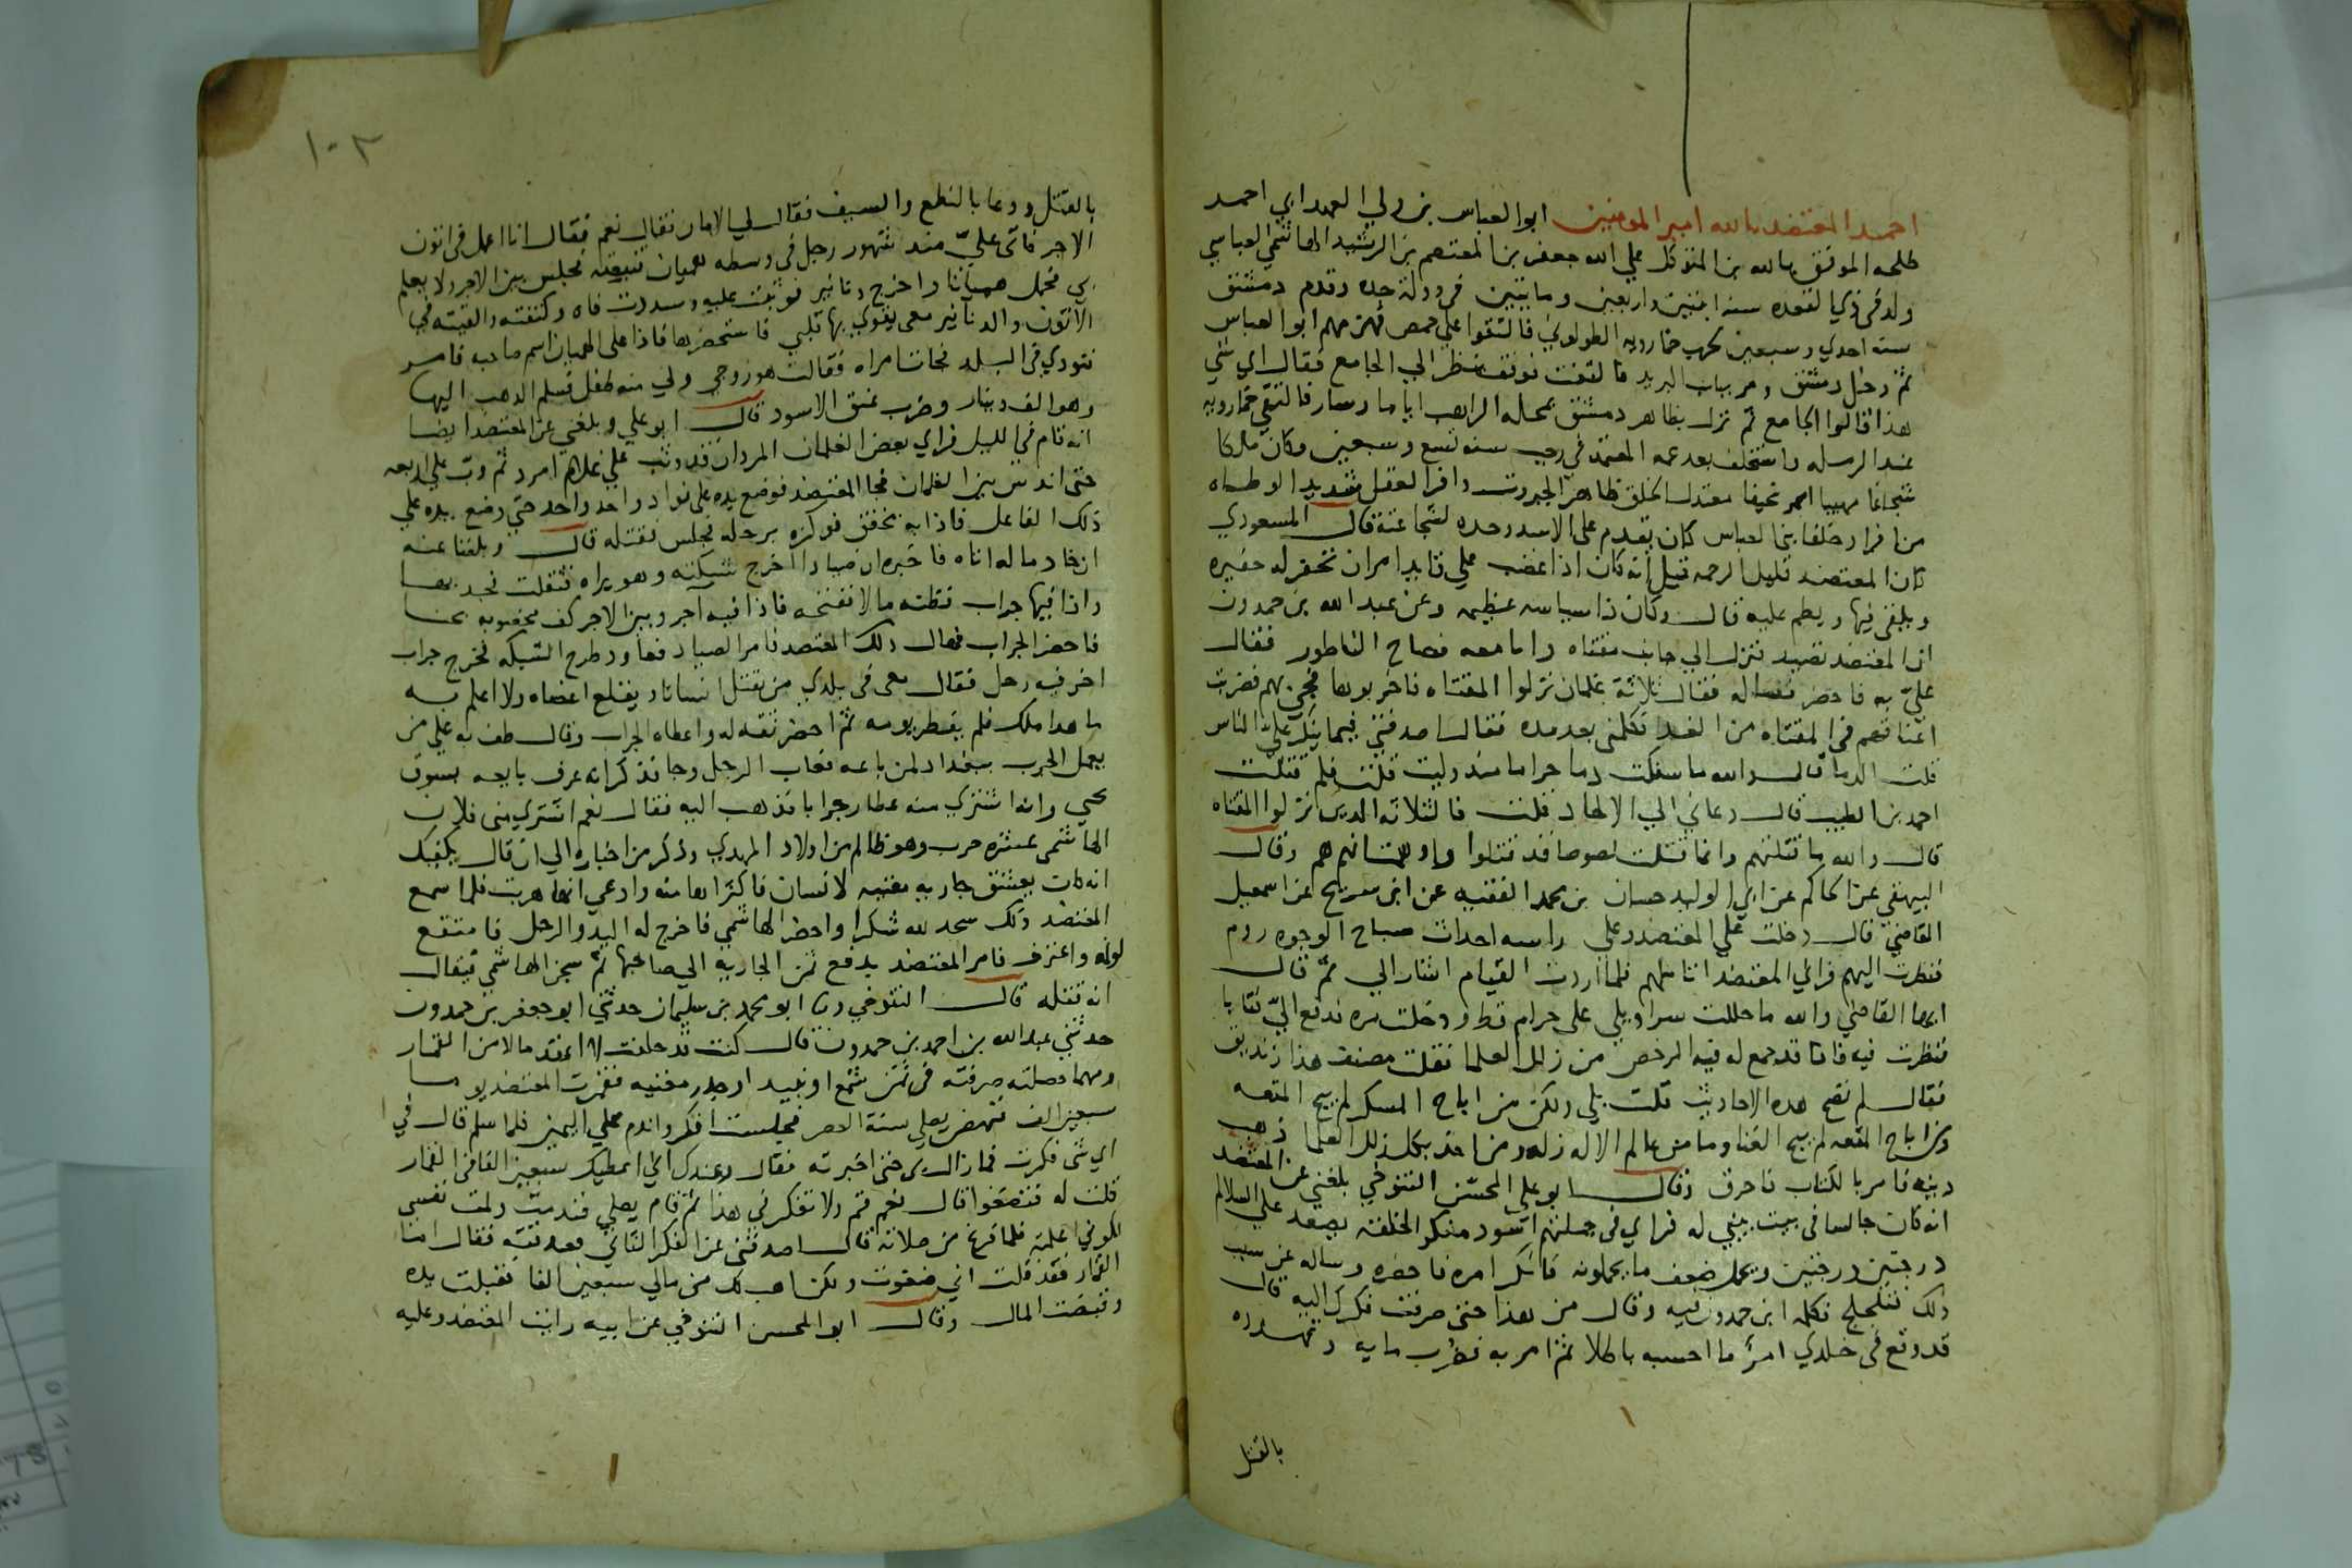 احمد المعتضد بالله امير المومنين ابو العباس بن ولي العهد ابي احمد
طلحه الموفق بالله بن المتوكل علي الله جعفر بن المعتصم بن الرشيد الهاشمي العباسي
ولد في ذي القعده سنه اثنين واربعين ومايتين في دولة جده وقدم دمشق
سنه احدي وسبعين لحرب خمارويه الطولوني فالتقوا علي حمص فهزمهم ابو العباس
ثم دخل دمشق ومر بباب البريد فالتفت فوقف ينظر الي الجامع فقال اي شي
هذا قالوا الجامع ثم نزل بظاهر دمشق بمحله الراهب اياما وسار فالتقي خمارويه
عند الرمله واستخلف بعد عمه المعتمد في رجب سنه تسع وسبعين وكان ملكا
شجاعا مهيبا اسمر نحيفا معتدل الخلق ظاهر الجبروت وافر العقل شديد الوطاه
من افراد خلفا بني العباس كان يقدم علي الاسد وحده لشجاعته قال المسعودي
كان المعتضد قليل الرحمه قيل انه كان اذا غضب علي قايد امر ان تحفر له حفيره
ويلقي فيها ويطم عليه قال وكان ذا سياسه عظيمه وعن عبد الله بن حمدون
ان المعتضد تصيد فنزل الي جانب مقثاه وانا معه فصاح الناطور فقال
علي به فاحضر فساله فقال ثلاثة غلمان نزلوا المقثاه فاخربوها فجي بهم فضربت
اعناقهم في المقثاه من الغد فكلمني بعد مده فقال اصدقني فيما ينكر علي الناس
قلت الدما قال والله ما سفكت دما حراما منذ وليت قلت فلم قتلت
احمد بن الطيب قال دعاني الي الالحاد قلت فالثلاثه الدين نزلوا المقثاه
قال والله ما قتلتهم وانما قتلت لصوصا قد قتلوا واوهمت انهم هم وقال
البيهقي عن الحاكم عن ابي الوليد حسان بن محمد الفقيه عن ابن سريج عن اسمعيل
القاضي قال دخلت علي المعتضد وعلي راسه احداث صباح الوجوه روم
فنظرت اليهم فراني المعتضد اتاملهم فلما اردت القيام اشار الي ثم قال
ايها القاضي والله ما حللت سراويلي علي حرام قط ودخلت مره فدفع الي كتابا
فنظرت فيه فاذا قد جمع له فيه الرخص من زلل العلما فقلت مصنف هذا زنديق
فقال لم تصح هذه الاحاديث قلت بلي ولكن من اباح المسكر لم يبح المتعه
ومن اباح المتعه لم يبح الغنا وما من عالم الا له زله ومن اخذ بكل زلل العلما ذهب
دينه فامر بالكتاب فاحرق وقال ابو علي المحسن التنوخي بلغني عن المعتضد
انه كان جالسا في بيت يبني له فراي في جملتهم اسود منكر الخلقه يصعد علي السلالم
درجتين درجتين ويحمل ضعف ما يحملونه فانكر امره فاحضره وساله عن سبب
ذلك فتلجلج فكلمه ابن حمدون فيه وقال من هذا حتي صرفت فكرك اليه قال
قد وقع في خلدي امر ما احسبه باطلا ثم امر به فضرب مايه وتهدده
بالقتل
١٠٢
بالقتل ودعا بالنطع والسيف فقال لي الامان فقال نعم فقال انا اعمل في اتون
الاجر فاتي علي منذ شهور رجل في وسطه هميان فتبعته فجلس بين الاجر ولا يعلم
بي فحمل هميانا واخرج دنانير فوثبت عليه وسددت فاه وكتفته والقيته في
الاتون والدنانير معي يقوي بها قلبي فاستحضرها فاذا علي الهميان اسم صاحبه فامر
فنودي في البلد فجات امراه فقالت هو زوجي ولي منه طفل فسلم الذهب اليها
وهو الف دينار وضرب عنق الاسود قال ابو علي وبلغني عن المعتضد ايضا
انه قام في الليل فراي بعض الغلمان المردان قد وثب علي غلام امرد ثم دب علي اربعه
حتي اندس بين الغلمان فجا المعتضد فوضع يده علي فواد واحد واحد حتي وضع يده علي
ذلك الفاعل فاذا به يخفق فوكزه برجله فجلس فقتله قال وبلغنا عنه
ان خادما له اتاه فاخبره ان صيادا اخرج شبكته وهو يراه فثقلت فجدبها
واذا فيها جراب فظنه مالا ففتحه فاذا فيه اجر وبين الاجر كف مخضوبه بحنا
فاحضر الجراب فهال ذلك المعتضد فامر الصياد فعاود طرح الشبكه فخرج جراب
اخر فيه رجل فقال معي في بلدي من يقتل انسانا ويقطع اعضاه ولا اعلم به
ما هدا ملك فلم يفطر يومه ثم احضر ثقه له واعطاه الجراب وقال طف به علي من
يعمل الجرب ببغداد لمن باعه فغاب الرجل وجا فذكر انه عرف بايعه بسوق
يحيي وانه اشتري منه عطار جرابا فذهب اليه فقال نعم اشتري مني فلان
الهاشمي عشره جرب وهو ظالم من اولاد المهدي وذكر من اخباره الي ان قال يكفيك
انه كان يعشق جاريه مغنيه لانسان فاكتراها منه وادعي انها هربت فلما سمع
المعتضد ذلك سجد لله شكرا واحضر الهاشمي فاخرج له اليد والرجل فامتقع
لونه واعترف فامر المعتضد بدفع ثمن الجاريه الي صاحبها ثم سجن الهاشمي فيقال
انه قتله قال التنوخي ونا ابو محمد بن سليمان حدثني ابو جعفر بن حمدون
حدثني عبد الله بن احمد بن حمدون قال كنت قد حلفت لا اعقد مالا من القمار
ومهما حصلته صرفته في ثمن شمع او نبيد او جدر مغنيه فقمرت المعتضد يوما
سبعين الف فنهض يصلي سنة العصر فجلست افكر واندم علي اليمين فلما سلم قال في
اي شي فكرت فما زال بي حتي اخبرته فقال وعندك اني اعطيك سبعين الفا في القمار
قلت له فتضغوا قال نعم قم ولا تفكر في هذا ثم قام يصلي فندمت ولمت نفسي
لكوني اعلمته فلما فرغ من صلاته قال اصدقني عن الفكر الثاني فصدقته فقال اما
القمار فقد قلت اني ضغوت ولكن اهب لك من مالي سبعين الفا فقبلت يده
وقبضت المال وقال ابو المحسن التنوخي عن ابيه رايت المعتضد وعليه